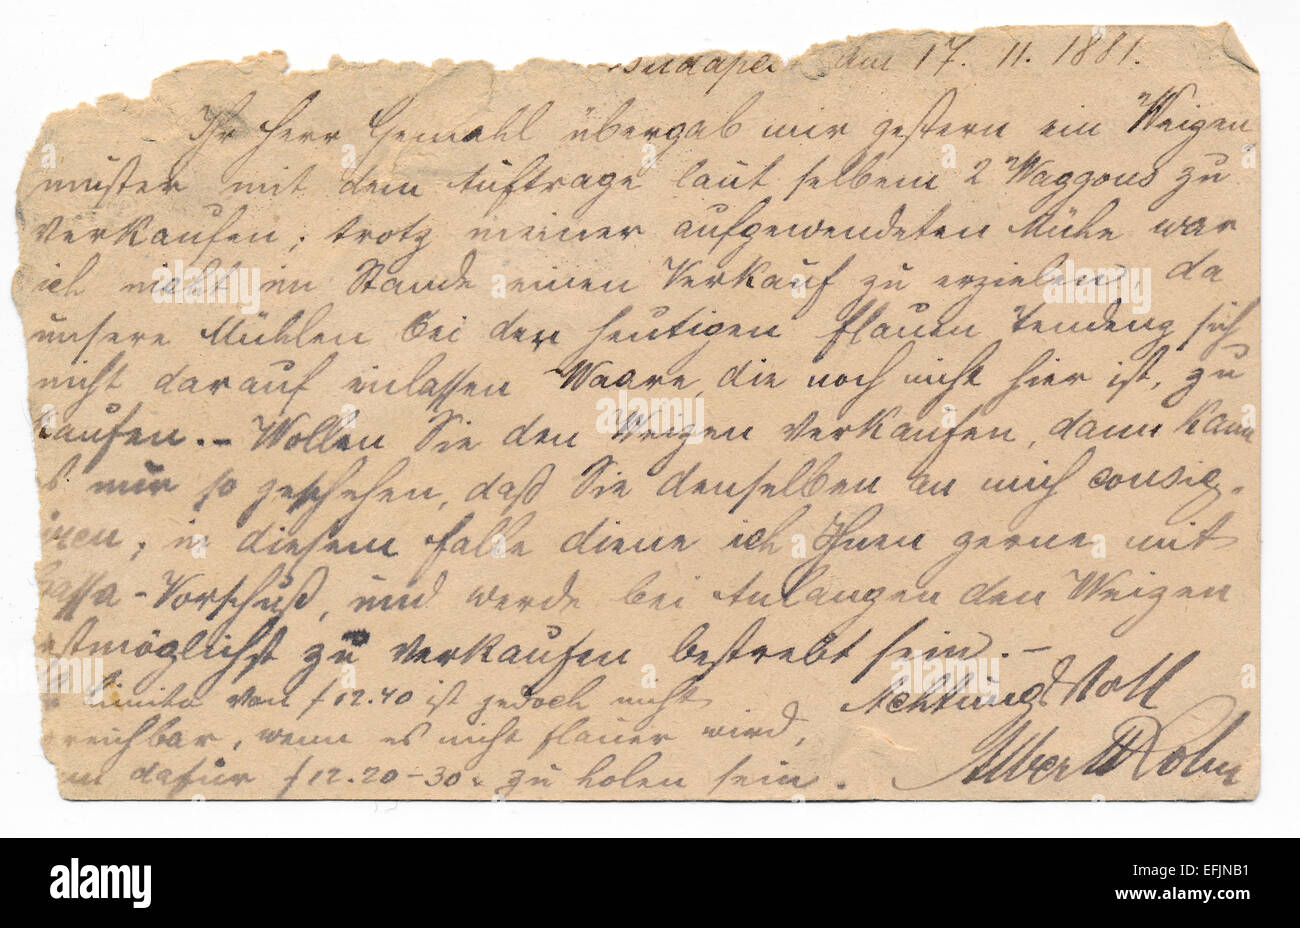 den 17. 11. 1881.
Ihr Herr Gemahl übergab mir gestern ein Weizen
muster mit dem Auftrage laut selbem 2 Waggons zu
verkaufen; trotz meiner aufgewendeten Mühe war
ich nicht im Stande einen Verkauf zu erzielen, da
unsere Mühlen bei der heutigen flauen Tendenz sich
nicht darauf einlassen Waare, die noch nicht hier ist, zu
kaufen. – Wollen Sie den Weizen verkaufen, dann kann
es nur so geschehen, daß Sie denselben an mich consig-
niren; in diesem Falle diene ich Ihnen gerne mit
Cassa-Vorschuß, und werde bei Anlangen den Weizen
bestmöglichst zu verkaufen bestrebt sein. –
Limito von f 12.40 ist jedoch nicht
erreichbar, wenn es nicht flauer wird,
dafür f 12.20-30. zu holen sein.
Achtungsvoll
Albert
alamy
alamy
Image ID: EFJNB1
www.alamy.com